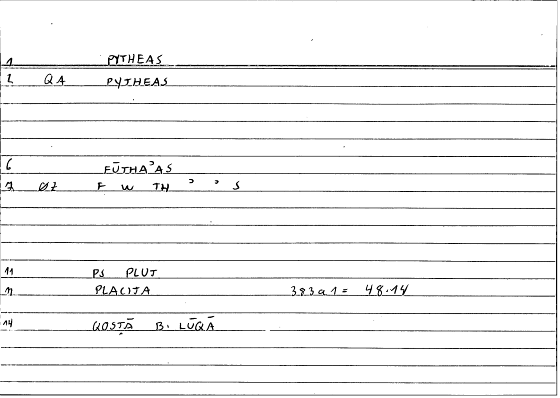 1 PYTHEAS
2 QA PYTHEAS
6 FŪTHAʾAS
7 ØZ F W TH ʾ ʾ S
11 PS PLUT
PLACITA 383a1 = 48.14
14 QOSṬĀ B. LŪQĀ